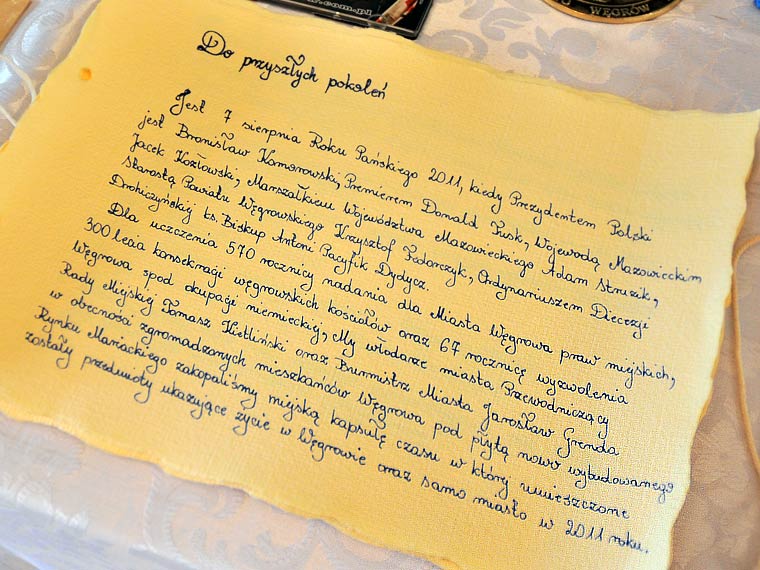 .com.pl
WĘGRÓW
Do przyszłych pokoleń
Jest 7 sierpnia Roku Pańskiego 2011, kiedy Prezydentem Polski
jest Bronisław Komorowski, Premierem Donald Tusk, Wojewodą Mazowieckim
Jacek Kozłowski, Marszałkiem Województwa Mazowieckiego Adam Struzik,
Starostą Powiatu Węgrowskiego Krzysztof Fedorczyk, Ordynariuszem Diecezji
Drohiczyńskiej ks. Biskup Antoni Pacyfik Dydycz.
Dla uczczenia 570 rocznicy nadania dla Miasta Węgrowa praw miejskich,
300 lecia konsekracji węgrowskich kościołów oraz 67 rocznicę wyzwolenia
Węgrowa spod okupacji niemieckiej, My włodarze miasta Przewodniczący
Rady Miejskiej Tomasz Kietliński oraz Burmistrz Miasta Jarosław Grenda
w obecności zgromadzonych mieszkańców Węgrowa pod płytą nowo wybudowanego
Rynku Mariackiego zakopaliśmy miejską kapsułę czasu w który umieszczone
zostały przedmioty ukazujące życie w Węgrowie oraz samo miasto w 2011 roku.